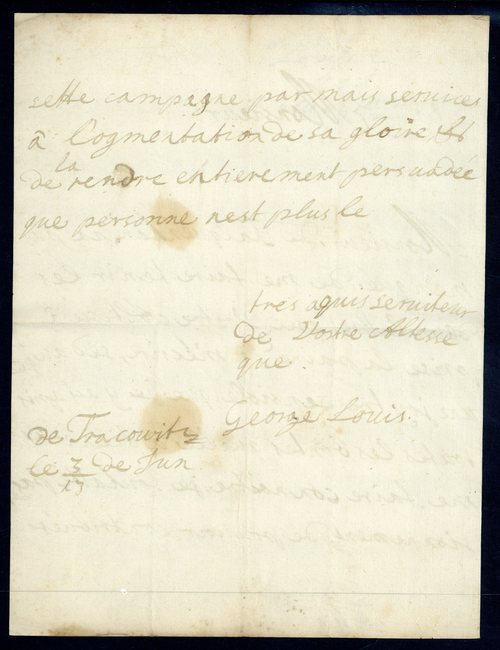 sette campegne par mais services
a l'ogmentation de sa gloire et
de la rendre entierement persuadée
que personne nest plus le
tres aquis serviteur
de Vostre Altesse
que
George Louis.
de Tracowitz
le 3/13 de Jun